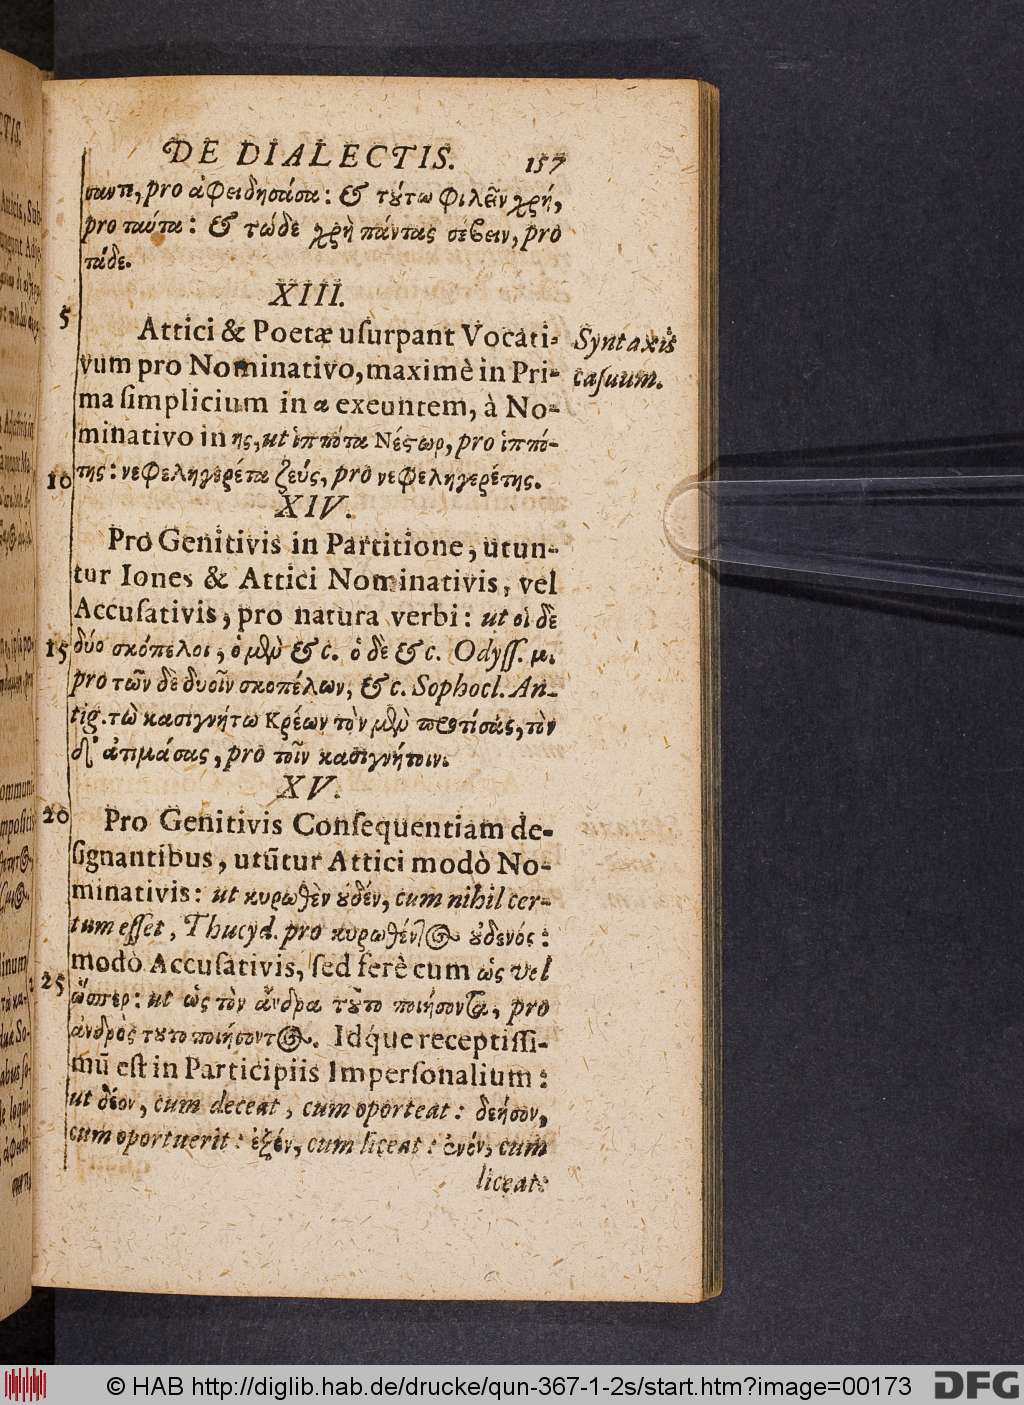 DE DIALECTIS. 157
σαντι, pro ἀφειδησάσα: & τȣ́τω φιλεῖν χρή,
pro ταύτα: & τώδε χρὴ πάντας σέβειν, pro
τάδε.
XIII.
5
Attici & Poetæ uſurpant Vocati-
vum pro Nominativo, maximè in Pri-
ma ſimplicium in α exeuntem, à No-
minativo in ης, ut ἱππότα Νέστωρ, pro ἱππό-
10 της: νεφεληγερέτα ζεύς, pro νεφεληγερέτης.
Syntaxis
caſuum.
XIV.
Pro Genitivis in Partitione, utun-
tur Iones & Attici Nominativis, vel
Accuſativis, pro natura verbi: ut οἱ δὲ
15 δύο σκόπελοι, ὁ μὲν &c. ὁ δὲ &c. Odyſſ. μ.
pro τῶν δὲ δυοῖν σκοπέλων, &c. Sophocl. An-
tig. τὼ κασιγνήτω Κρέων τὸν μὲν προτίσας, τὸν
δ' ἀτιμάσας, pro τοῖν κασιγνήτοιν.
XV.
20 Pro Genitivis Conſequentiam de-
ſignantibus, utūtur Attici modò No-
minativis: ut κυρωθὲν ȣ̓δέν, cum nihil cer-
tum eſſet, Thucyd. pro κυρωθέντος ȣ̓δενός:
modò Accuſativis, ſed ferè cum ὡς vel
25 ὥσπερ: ut ὡς τὸν ἄνδρα τȣ͂το ποιήσοντα, pro
ἀνδρὸς τȣτο ποιήσοντος. Idq́ue receptiſſi-
mū eſt in Participiis Imperſonalium:
ut δέον, cum deceat, cum oporteat: δεήσον,
cum oportuerit: ἐξόν, cum liceat: ἐνόν, cum
liceat:
© HAB http://diglib.hab.de/drucke/qun-367-1-2s/start.htm?image=00173 DFG